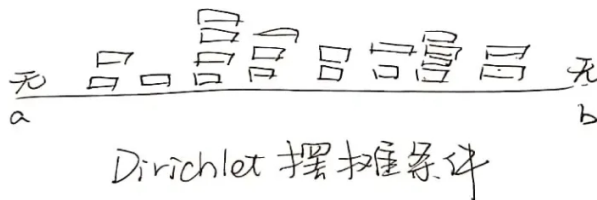 无 无
a b
Dirichlet 摆摊条件